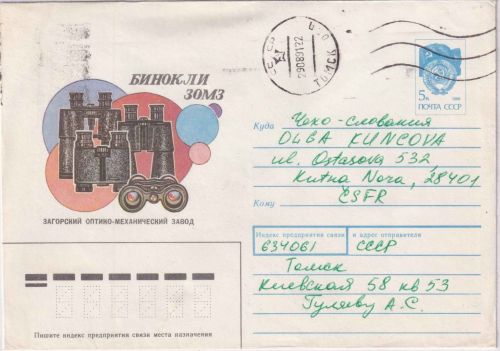 БИНОКЛИ
ЗОМЗ
ЗАГОРСКИЙ ОПТИКО-МЕХАНИЧЕСКИЙ ЗАВОД
СССР
29089122
ТОМСК
5к
1988
ПОЧТА СССР
Куда Чехо-словакия
OLGA KUNCOVA
ul. Ostašova 532,
Kutna Hora, 28401
Кому ČSFR
Индекс предприятия связи и адрес отправителя
634061 СССР
Томск
Киевская 58 кв 53
Гуляеву А.С.
Пишите индекс предприятия связи места назначения